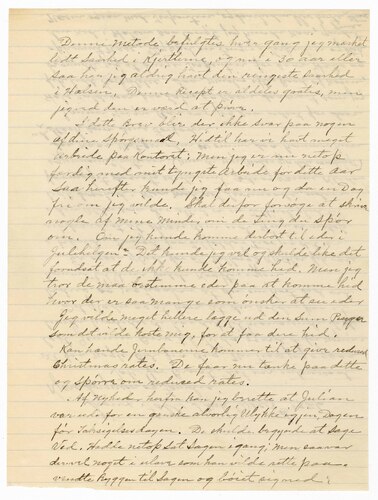 Denne Metode befulgtes hver gang jeg mærket
lidt Saarhed i Kjertlerne, og nu i 30 aar eller
saa har jeg aldrig havt den ringeste Saarhed
i Halsen. Denne Recept er aldeles gratis, men
jeg ved den er værd at prøve.
I dette Brev blir der ikke svar paa nogen
af dine Spørgsmaal. Hidtil har vi havt meget
Arbeide paa Kontoret; Men jeg er nu netop
færdig med mit tyngste Arbeide for dette Aar
Saa herefter kunde jeg faa nu og da en Dag
fri om jeg vilde. Skal derfor forsøge at skrive
nogle af mine Minder om de Ting der spør
om. Om jeg kunde komme did bort til eder i
Julehelgen? Det kunde jeg vel og skulde like det
forudsat at de ikke kunde komme hid. Men jeg
tror de maa bestemme eder paa at komme hid
hvor der er saa mange som ønsker at se eder
Jeg vilde meget hellere lægge ud den Sum Penger
som det vilde koste mig, for at faa dere hid.
Kan hænde Jernbanerne kommer til at give reduced
Christmas rates. De faar nu tænke paa dette
og Spørre om reduced rates.
Af Nyhed herfra kan jeg berette at Julian
var ude for en ganske alvorlig Ulykke igjen, Dagen
før Taksigelsesdagen. De skulde begynde at Sage
Ved. Hadde netop sat Sagen igang; men saa var
der vel noget i ulave som han vilde rette paa
vendte Ryggen til Sagen og bøiet sig ned;